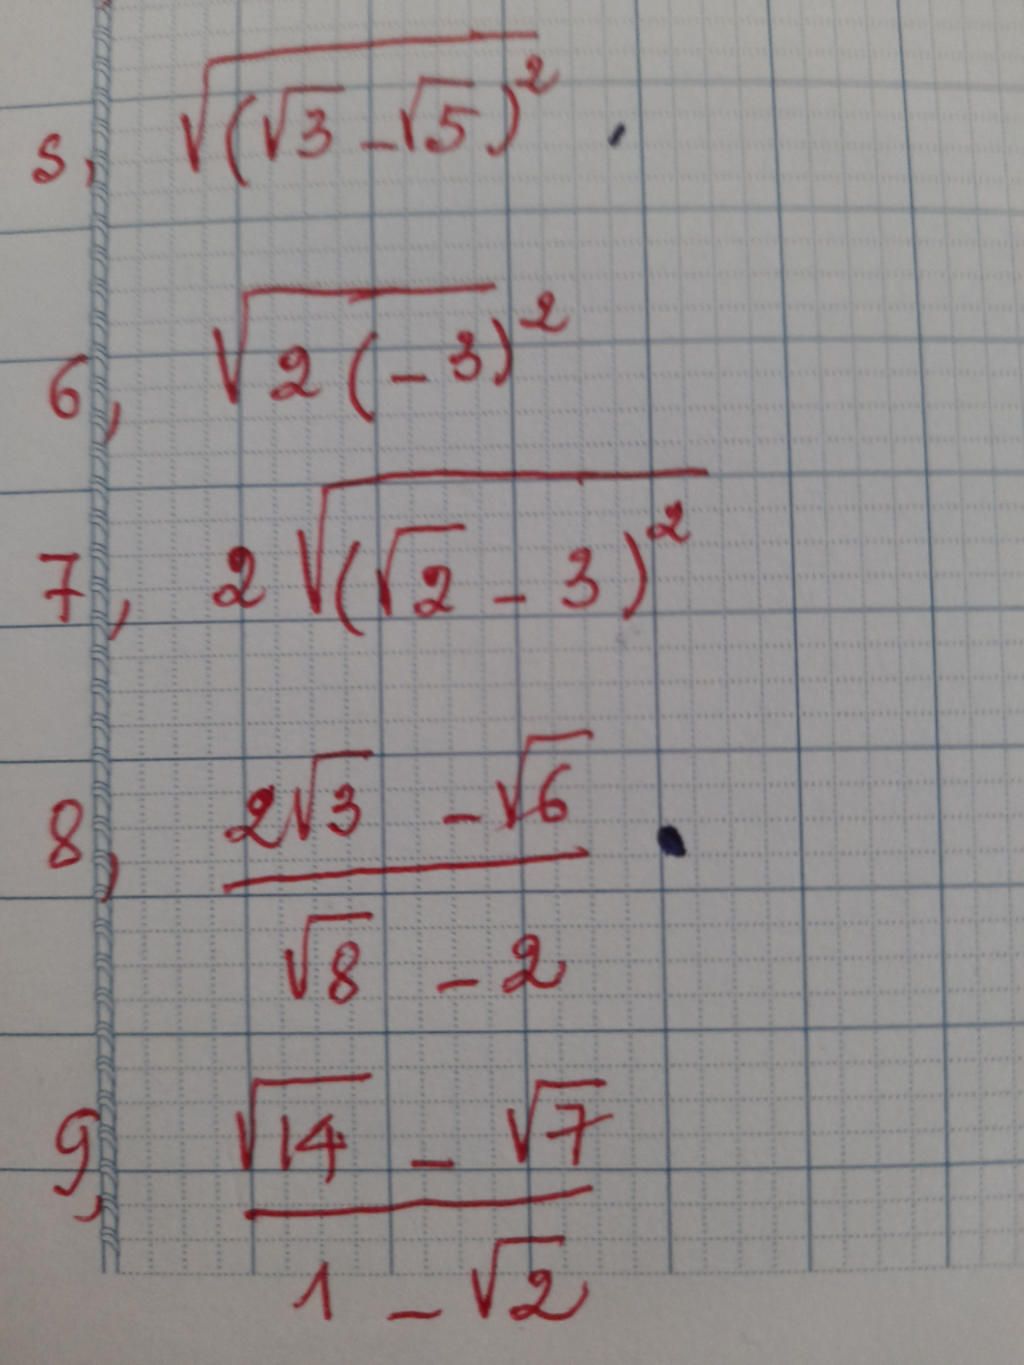 5, √(√3 - √5)²
6, √2(-3)²
7, 2√(√2 - 3)²
8, 2√3 - √6
√8 - 2
9, √14 - √7
1 - √2